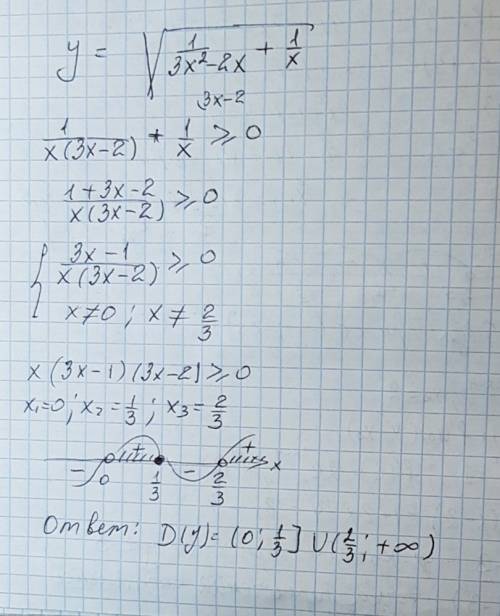 y = √(1/(3x²-2x) + 1/x)
3x-2
1/(x(3x-2)) + 1/x ⩾ 0
(1+3x-2)/(x(3x-2)) ⩾ 0
{ (3x-1)/(x(3x-2)) ⩾ 0
x≠0; x ≠ 2/3
x(3x-1)(3x-2) ⩾ 0
x₁=0; x₂=1/3; x₃=2/3
- + - + x
0 1/3 2/3
Ответ: D(y)= (0; 1/3] ∪ (2/3; +∞)